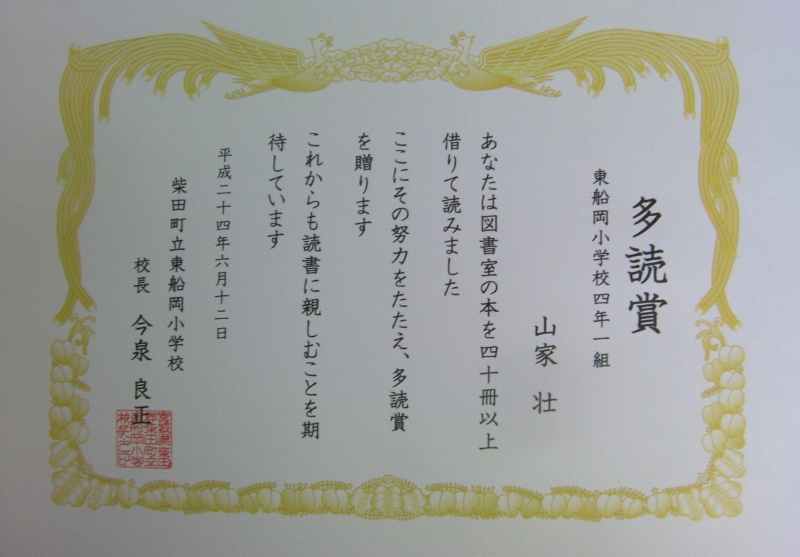 多読賞
東船岡小学校四年一組
山家 壮
あなたは図書室の本を四十冊以上
借りて読みました
ここにその努力をたたえ、多読賞
を贈ります
これからも読書に親しむことを期
待しています
平成二十四年六月十二日
柴田町立東船岡小学校
校長 今泉良正